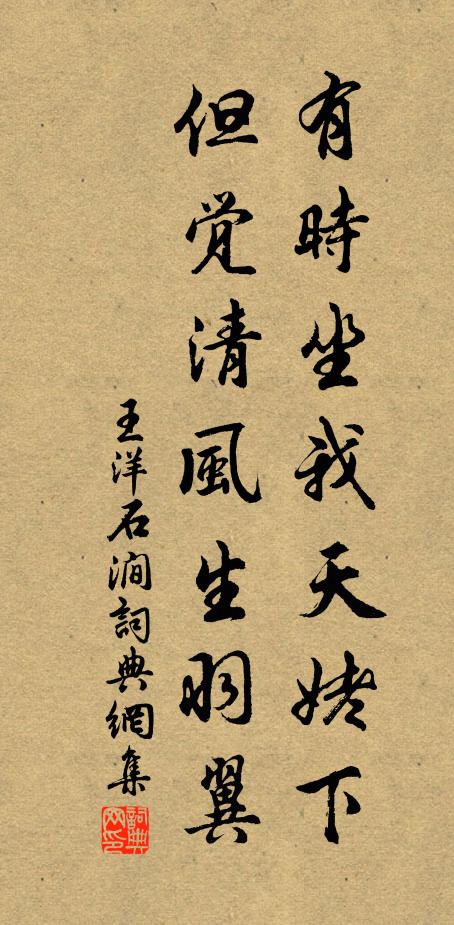 有時坐我天姥下
但覚清風生羽翼
王洋石澗詞典網集
詞典
网印